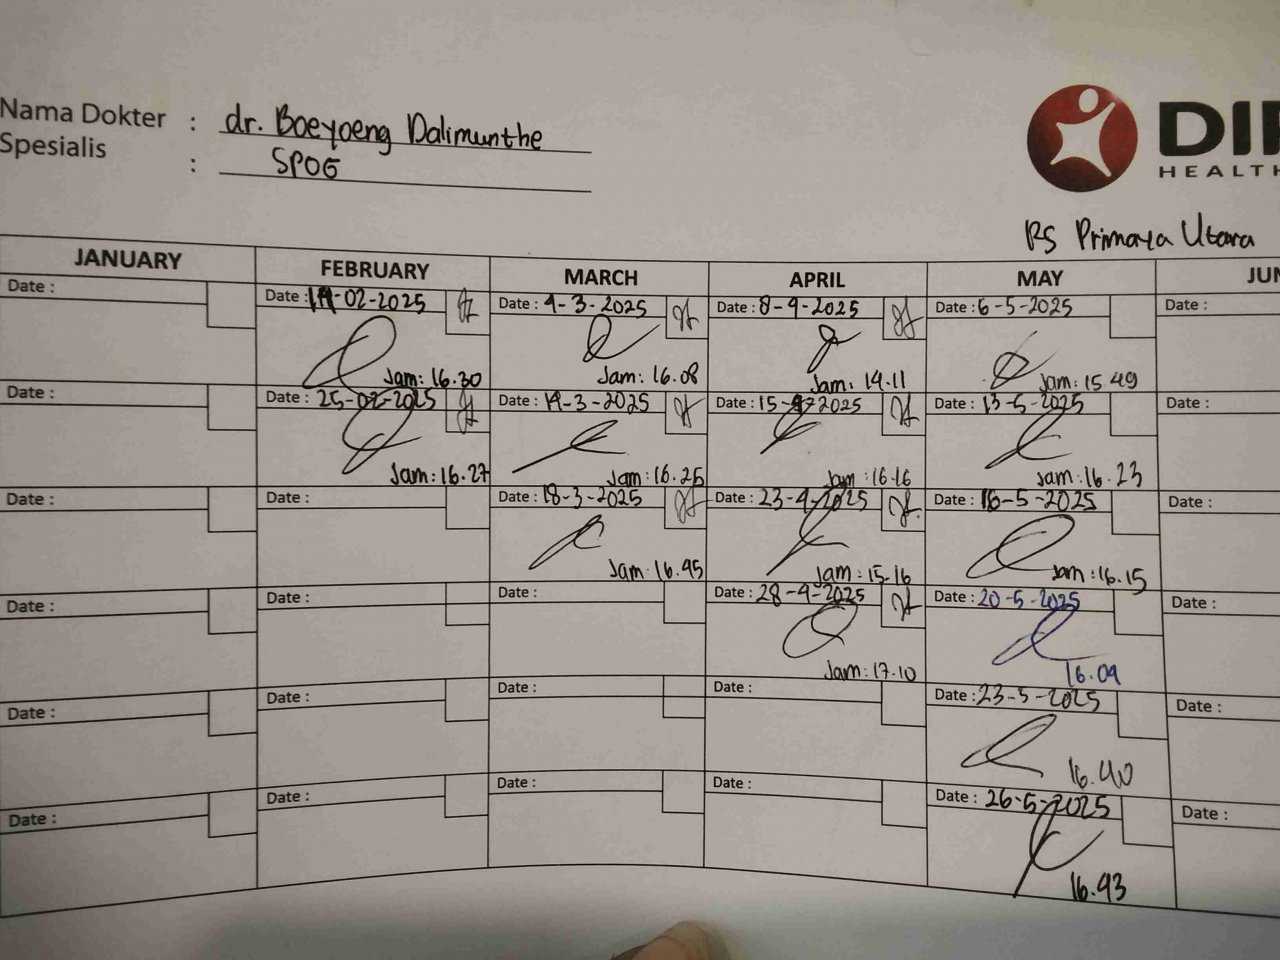 Nama Dokter : dr. Boeyoeng Dalimunthe
Spesialis : SPOG
DIP
HEALTH
RS Primaya Utara
JANUARY FEBRUARY MARCH APRIL MAY JUN
Date : Date : 19-02-2025 Date : 4-3-2025 Date : 8-4-2025 Date : 6-5-2025 Date :
Jam: 16.30 Jam: 16.08 Jam: 14.11 Jam: 15 49
Date : Date : 25-02-2025 Date : 14-3-2025 Date : 15-4-2025 Date : 13-5-2025 Date :
Jam: 16.27 Jam: 16.25 Jam 16.16 Jam: 16.23
Date : Date : Date : 18-3-2025 Date : 23-4-2025 Date : 16-5-2025 Date :
Jam: 16.45 Jam: 15.16 Jam: 16.15
Date : Date : Date : Date : 28-4-2025 Date : 20-5-2025 Date :
Jam: 17.10 16.09
Date : Date : Date : Date : Date : 23-5-2025 Date :
16.40
Date : Date : Date : Date : Date : 26-5-2025 Date :
16.43